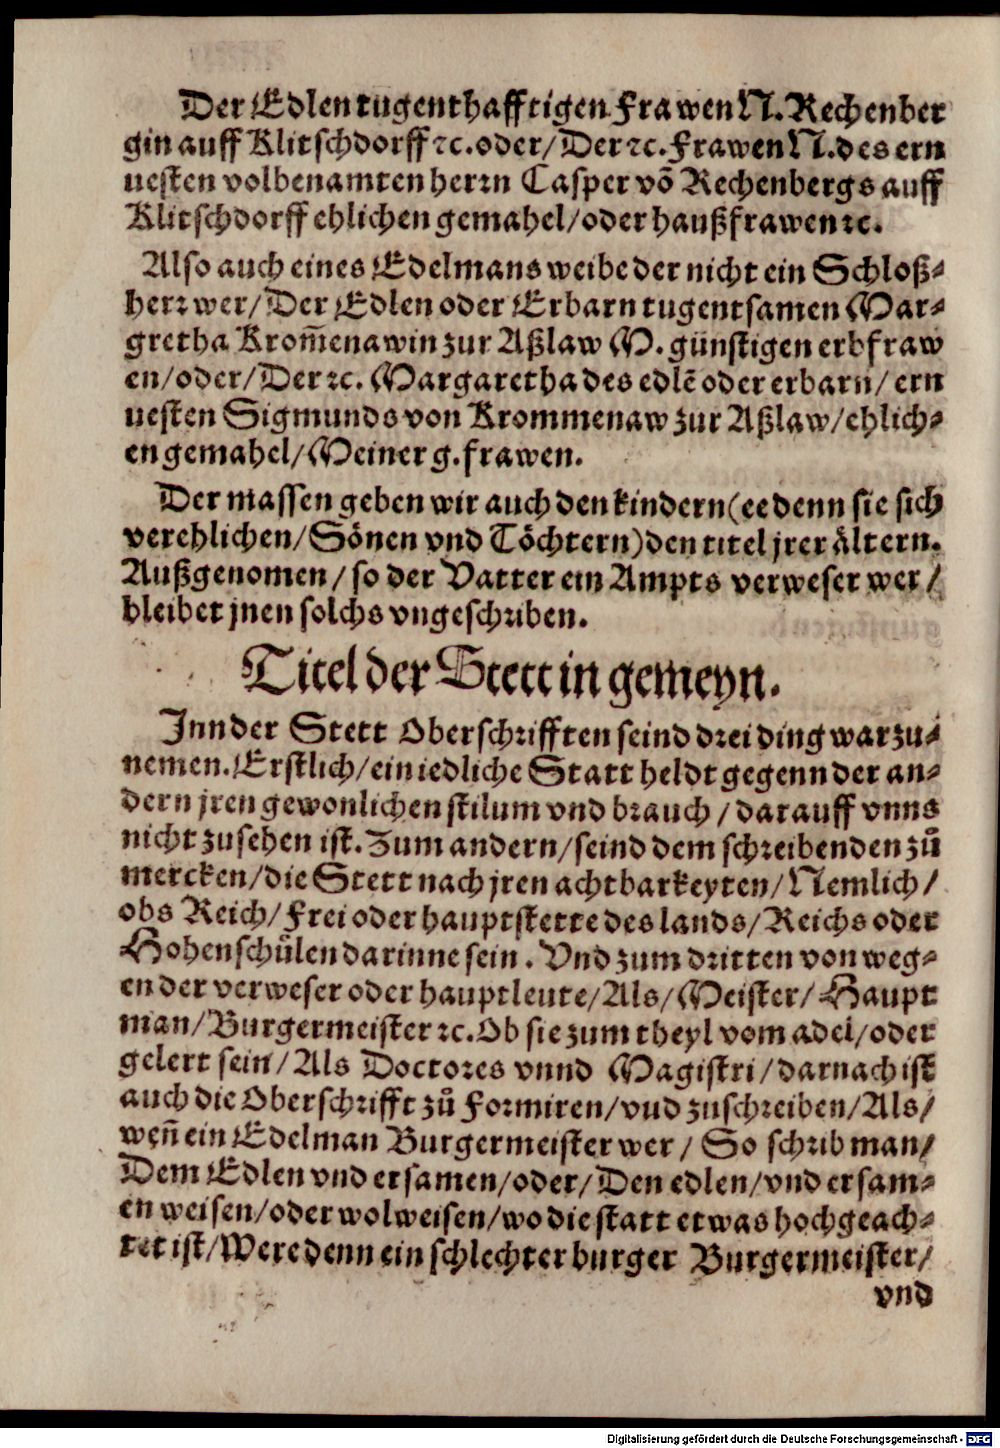 Der Edlen tugenthafftigen Frawen N. Rechenber
gin auff Klitschdorff ꝛc. oder/ Der ꝛc. Frawen N. des ern
uesten volbenamten herrn Casper vō Rechenbergs auff
Klitschdorff ehlichen gemahel/ oder haußfrawen ꝛc.
Also auch eines Edelmans weibe der nicht ein Schloß⸗
herr wer/ Der Edlen oder Erbarn tugentsamen Mar⸗
gretha Krom̄enawin zur Aßlaw M. günstigen erbfraw
en/ oder/ Der ꝛc. Margaretha des edlē oder erbarn/ ern
uesten Sigmunds von Krommenaw zur Aßlaw/ ehlich⸗
en gemahel/ Meiner g. frawen.
Der massen geben wir auch den kindern (ee denn sie sich
verehlichen/ Sönen vnd Töchtern) den titel jrer ältern.
Außgenomen/ so der Vatter ein Ampts verweser wer/
bleibet jnen solchs vngeschriben.
Titel der Stett in gemeyn.
Inn der Stett Oberschrifften seind drei ding war zu⸗
nemen. Erstlich/ ein iedliche Statt heldt gegenn der an⸗
dern jren gewonlichen stilum vnd brauch/ darauff vnns
nicht zusehen ist. Zum andern/ seind dem schreibenden zů
mercken/ die Stett nach jren achtbarkeyten/ Nemlich/
obs Reich/ Frei oder hauptstette des lands/ Reichs oder
Hohenschůlen darinne sein. Vnd zum dritten von weg⸗
en der verweser oder hauptleute/ Als/ Meister/ Haupt
man/ Burgermeister ꝛc. Ob sie zum theyl vom adel/ oder
gelert sein/ Als Doctores vnnd Magistri/ darnach ist
auch die Oberschrifft zů Formiren/ vnd zuschreiben/ Als/
weñ ein Edelman Burgermeister wer/ So schrib man/
Dem Edlen vnd ersamen/ oder/ Den edlen/ vnd ersam⸗
en weisen/ oder wolweisen/ wo die statt etwas hochgeach⸗
tet ist/ Were denn ein schlechter burger Burgermeister/
vnd
Digitalisierung gefördert durch die Deutsche Forschungsgemeinschaft - DFG